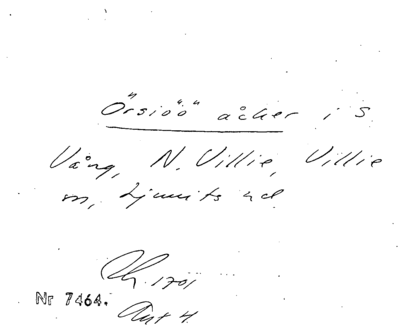 "Örsiöö" åcker i S.
Vång, N. Villie, Villie
m, Ljunits hd
Lh. 1701
Nr 7464.
Ant 4.